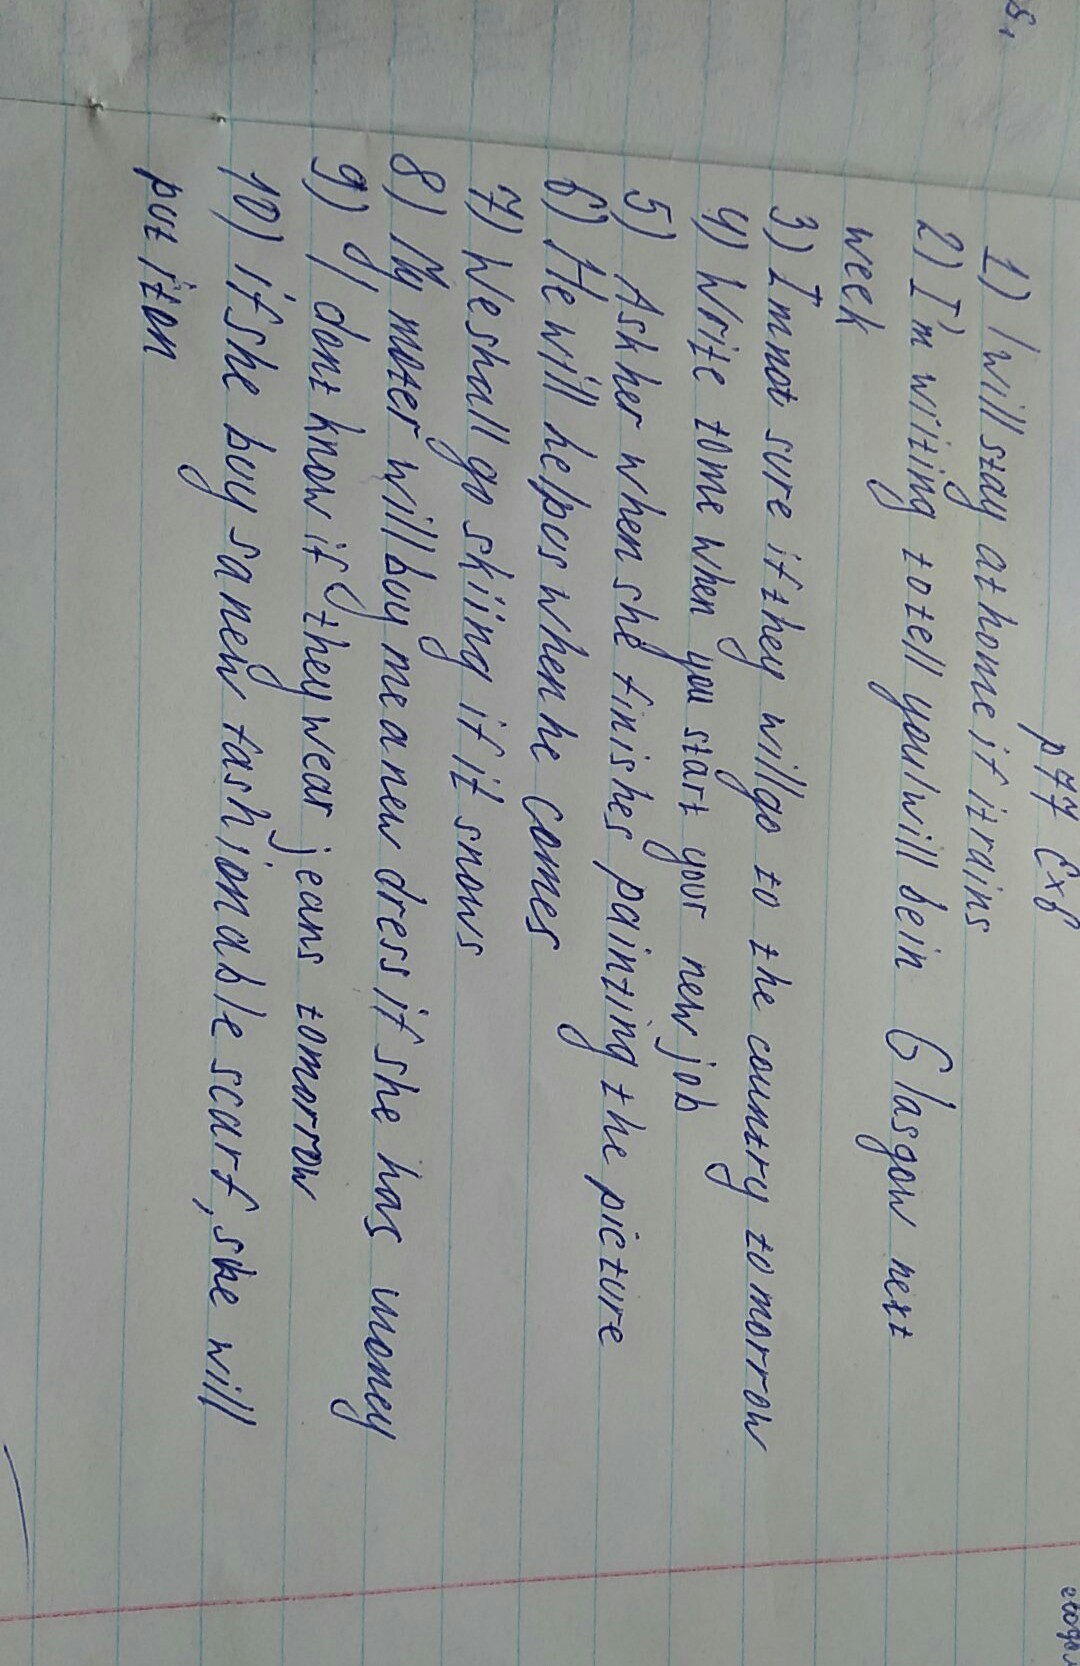 p 77 Ex 6
1) I will stay at home if it rains
2) I'm writing to tell you I will be in Glasgow next
week
3) I'm not sure if they will go to the country tomorrow
4) Write to me when you start your new job
5) Ask her when she finishes painting the picture
6) He will help us when he comes
7) We shall go skiing if it snows
8) My moter will buy me a new dress if she has money
9) I dont know if they wear jeans tomorrow
10) if she buys a new fashionable scarf, she will
put it on